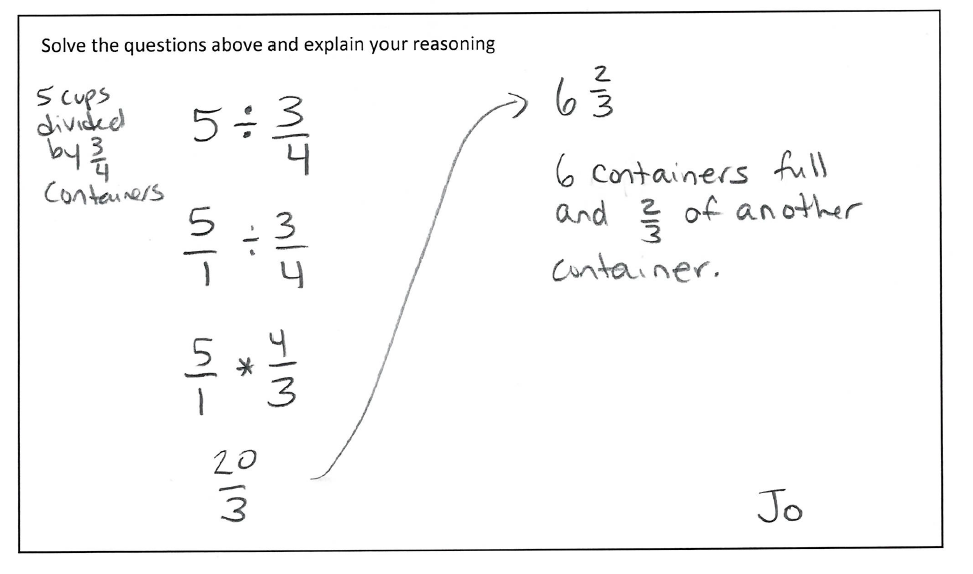 Solve the questions above and explain your reasoning
5 cups
divided
by 3/4
Containers
5 ÷ 3/4
5/1 ÷ 3/4
5/1 * 4/3
20/3
6 2/3
6 containers full
and 2/3 of another
container.
Jo